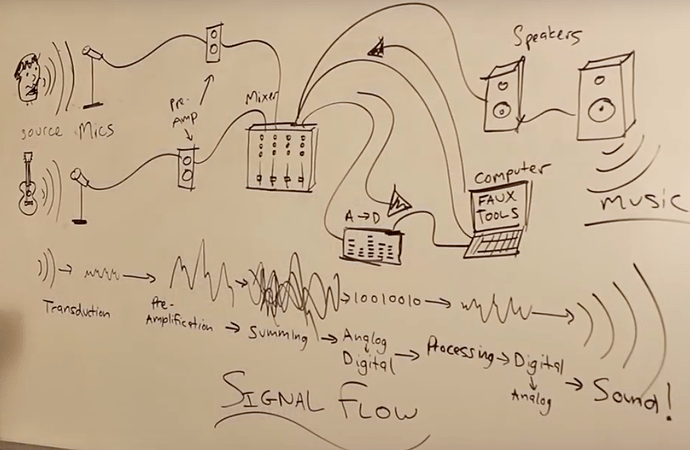 Speakers
Pre-
AMP
Mixer
source
Mics
computer
FAUX
TOOLS
A→D
MUSIC
10010010
Transduction
Pre-
Amplification → Summing → Analog
Digital → Processing → Digital
Analog → Sound!
SIGNAL FLOW